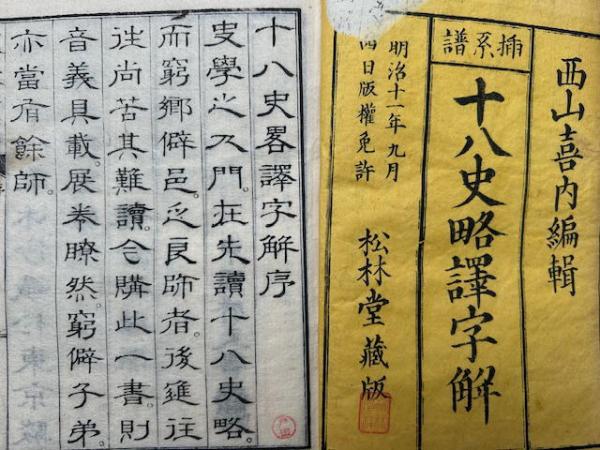 西山喜内編輯
挿系譜
十八史略譯字解
明治十一年九月
四日版權免許
松林堂藏版
十八史畧譯字解序
史學之入門。在先讀十八史略。
而窮鄉僻邑。乏良師者。後進往
往尚苦其難讀。今購此一書。則
音義具載。展卷瞭然。窮僻子弟。
亦當有餘師。